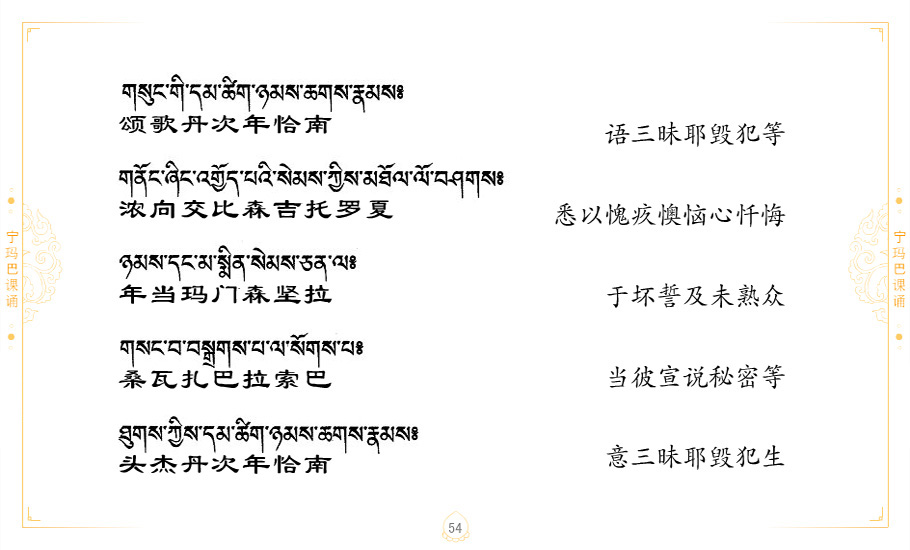 གསུང་གི་དམ་ཚིག་ཉམས་ཆགས་རྣམས༔
颂歌丹次年恰南
语三昧耶毁犯等
གནོང་ཞིང་འགྱོད་པའི་སེམས་ཀྱིས་མཐོལ་ལོ་བཤགས༔
浓向交比森吉托罗夏
悉以愧疚懊恼心忏悔
ཉམས་དང་མ་སྨིན་སེམས་ཅན་ལ༔
年当玛门森坚拉
于坏誓及未熟众
གསང་བ་བསྒྲགས་པ་ལ་སོགས་པ༔
桑瓦扎巴拉索巴
当彼宣说秘密等
ཐུགས་ཀྱིས་དམ་ཚིག་ཉམས་ཆགས་རྣམས༔
头杰丹次年恰南
意三昧耶毁犯生
宁玛巴课诵
宁玛巴课诵
54